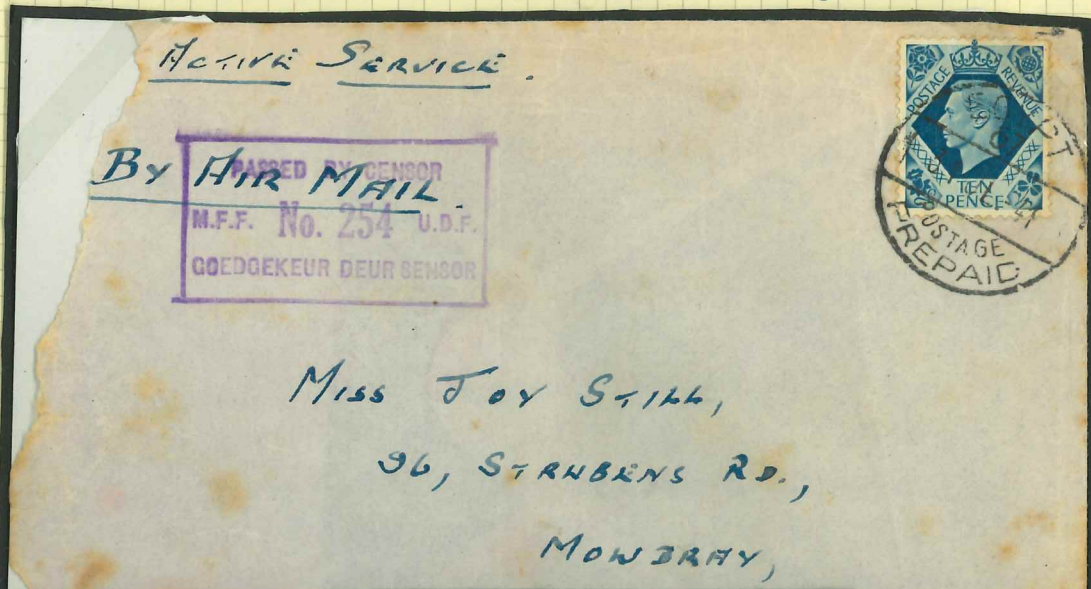 ACTIVE SERVICE.
BY AIR MAIL.
PASSED BY CENSOR
M.F.F. No. 254 U.D.F.
GOEDGEKEUR DEUR SENSOR
POSTAGE REVENUE
TEN
PENCE
POSTAGE
PREPAID
MISS JOY STILL,
96, STRUBENS RD.,
MOWBRAY,